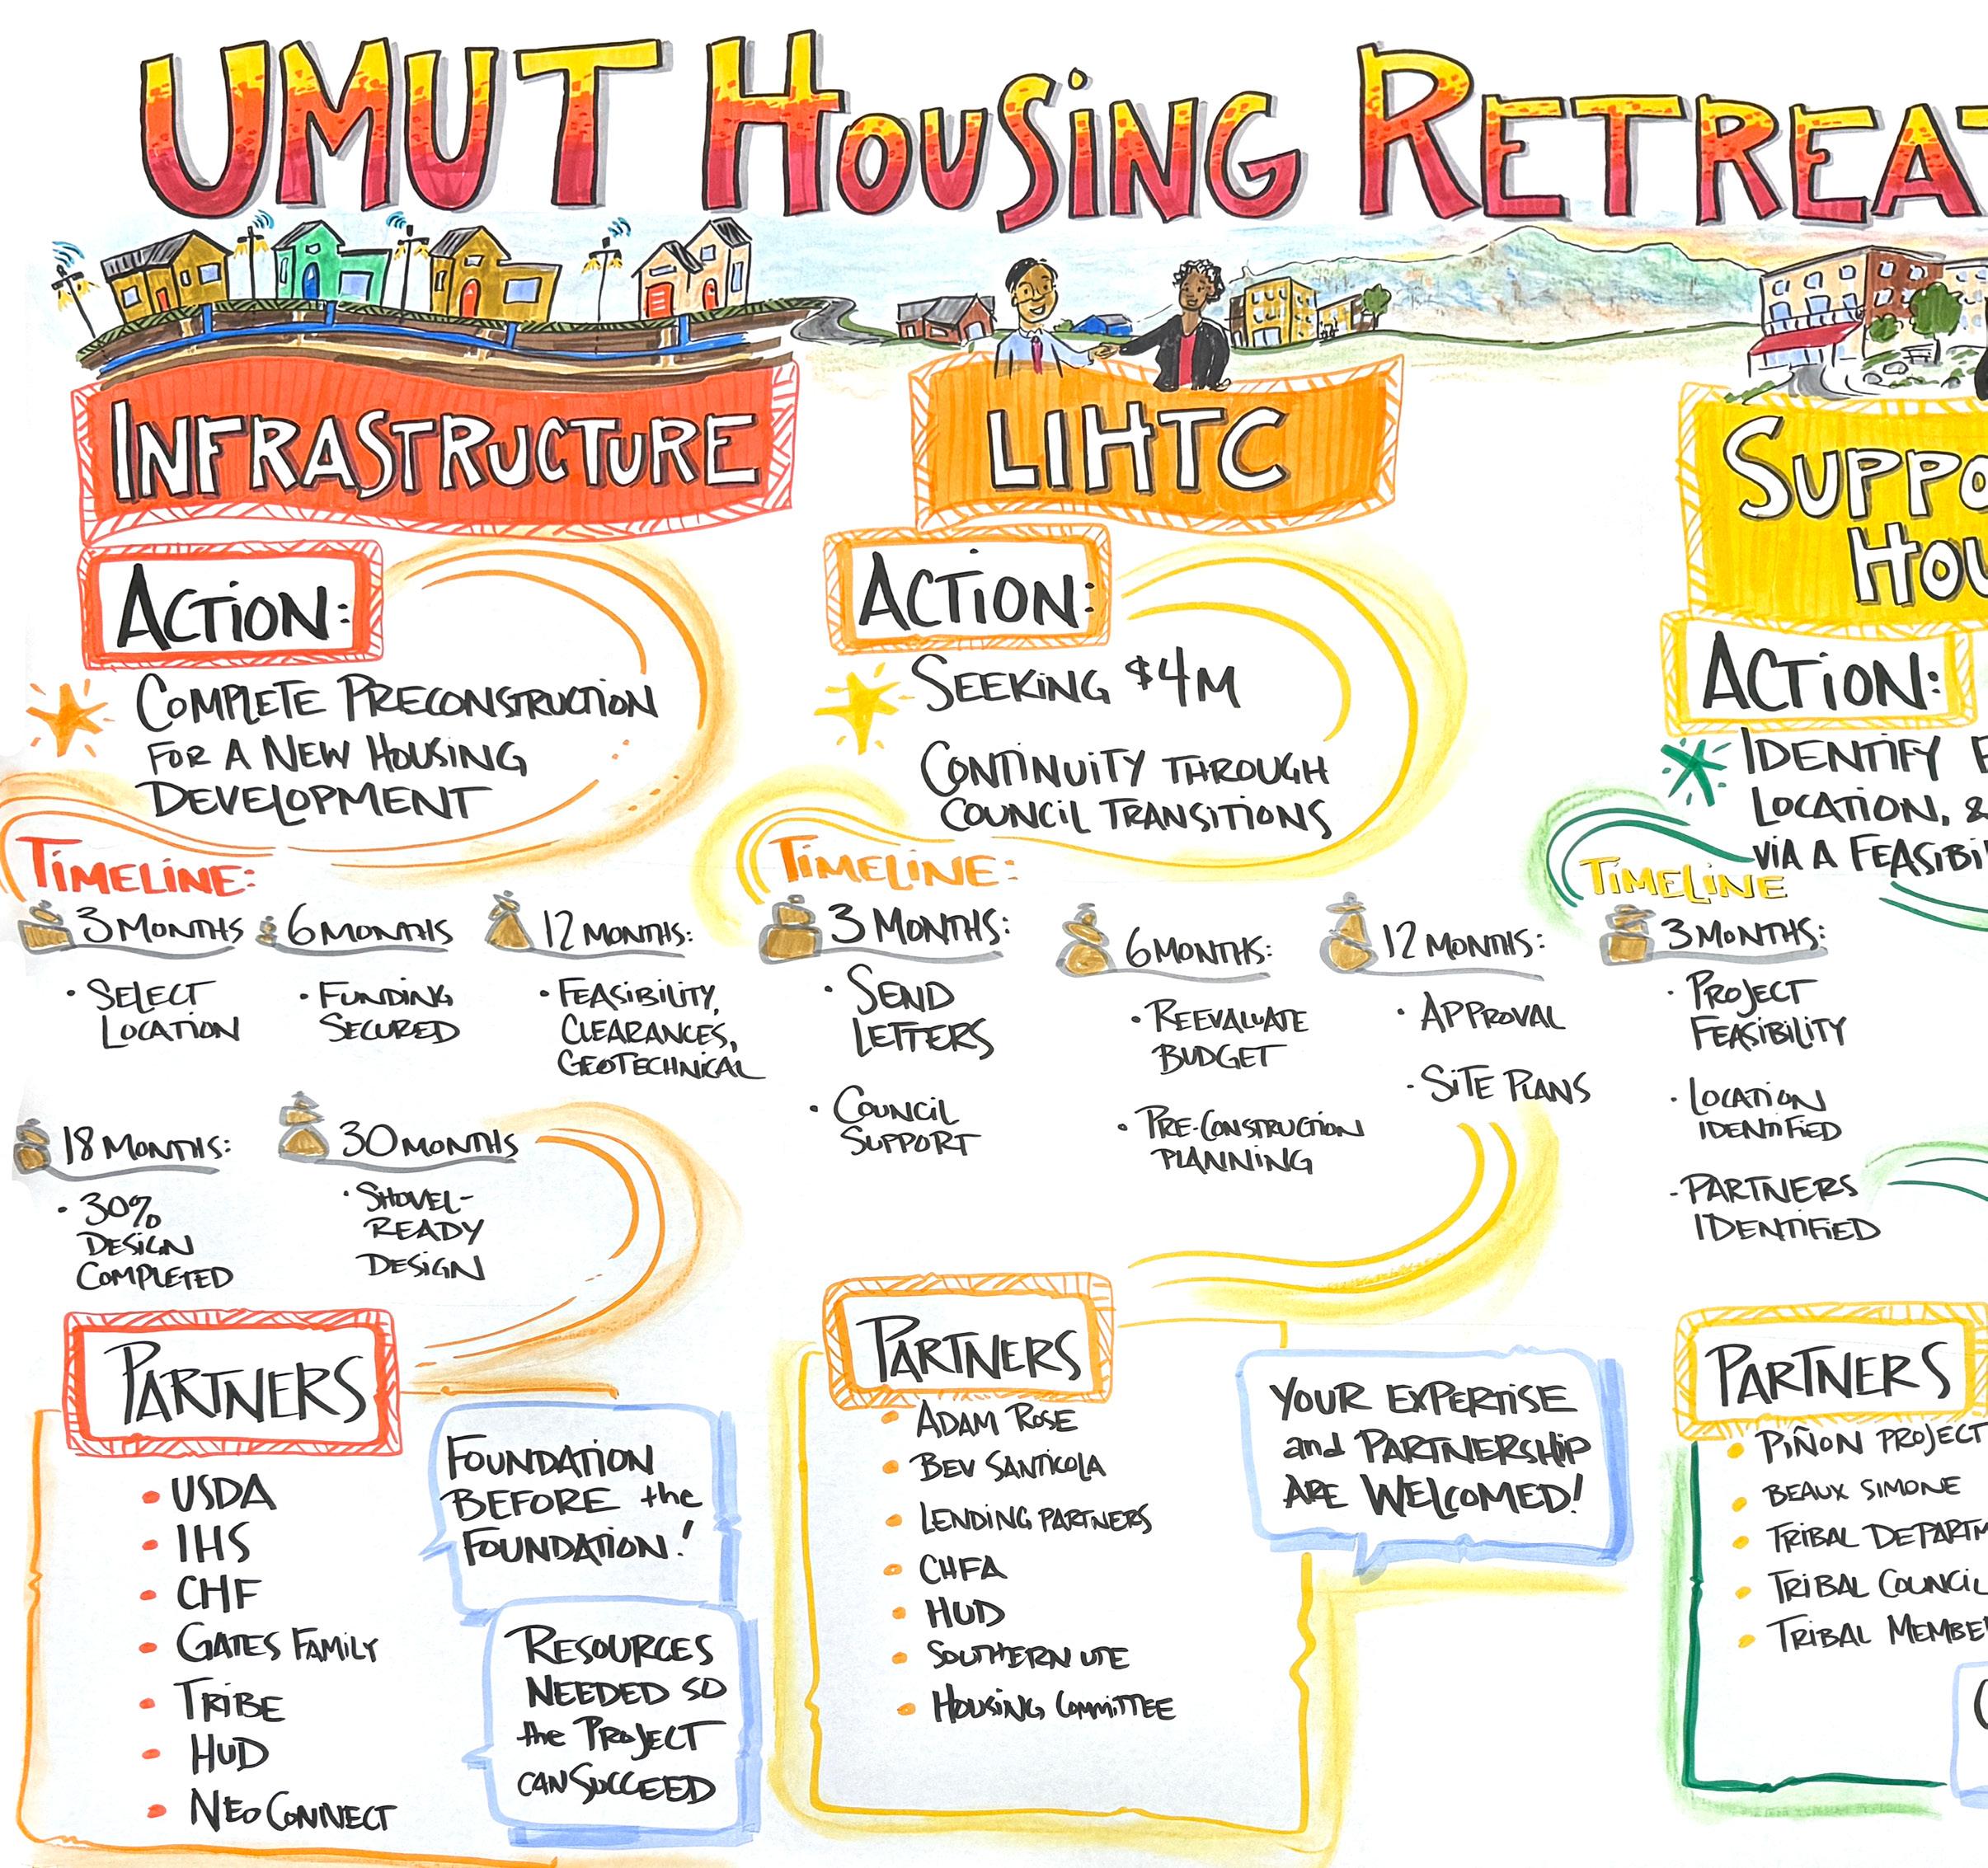 UMUT HOUSING RETREAT
INFRASTRUCTURE
ACTION:
COMPLETE PRECONSTRUCTION
FOR A NEW HOUSING
DEVELOPMENT
TIMELINE:
3 MONTHS
• SELECT
LOCATION
6 MONTHS
• FUNDING
SECURED
12 MONTHS:
• FEASIBILITY,
CLEARANCES,
GEOTECHNICAL
18 MONTHS:
• 30%
DESIGN
COMPLETED
30 MONTHS
• SHOVEL-
READY
DESIGN
PARTNERS
• USDA
• IHS
• CHF
• GATES FAMILY
• TRIBE
• HUD
• NEO CONNECT
FOUNDATION
BEFORE the
FOUNDATION!
RESOURCES
NEEDED SO
the PROJECT
CAN SUCCEED
LIHTC
ACTION:
SEEKING $4M
CONTINUITY THROUGH
COUNCIL TRANSITIONS
TIMELINE:
3 MONTHS:
• SEND
LETTERS
• COUNCIL
SUPPORT
6 MONTHS:
• REEVALUATE
BUDGET
• PRE-CONSTRUCTION
PLANNING
12 MONTHS:
• APPROVAL
• SITE PLANS
PARTNERS
• ADAM ROSE
• BEV SANTICOLA
• LENDING PARTNERS
• CHFA
• HUD
• SOUTHERN UTE
• HOUSING COMMITTEE
YOUR EXPERTISE
and PARTNERSHIP
ARE WELCOMED!
SUPPO
HOU
ACTION:
IDENTIFY
LOCATION, &
VIA A FEASIBI
TIMELINE
3 MONTHS:
• PROJECT
FEASIBILITY
• LOCATION
IDENTIFIED
- PARTNERS
IDENTIFIED
PARTNERS
• PIÑON PROJECT
• BEAUX SIMONE
• TRIBAL DEPARTM
• TRIBAL COUNCIL
• TRIBAL MEMBE